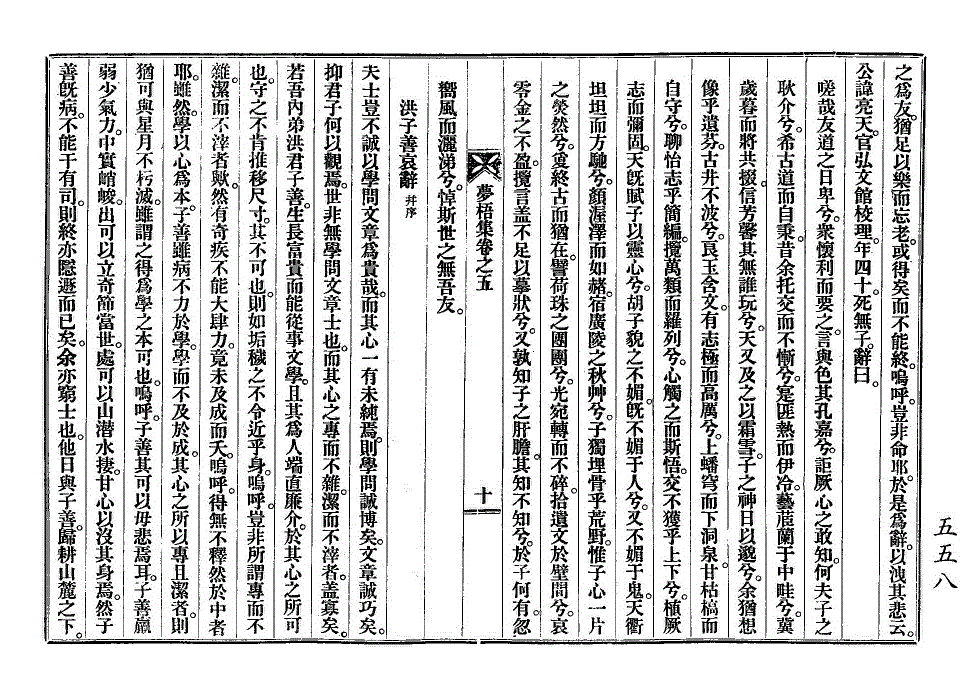 之爲友。猶足以樂而忘老。或得矣而不能終。嗚呼。豈非命耶。於是爲辭。以洩其悲云。
公諱亮天。官弘文館校理。年四十死無子。辭曰。
嗟哉友道之日卑兮。衆懷利而要之。言與色其孔嘉兮。詎厥心之敢知。何夫子之
耿介兮。希古道而自秉。昔余托交而不慚兮。寔匪熱而伊冷。藝蓲蘭于中畦兮。冀
歲暮而將共掇。信芳馨其無誰玩兮。天又及之以霜雪。子之神日以邈兮。余猶想
像乎遺芬。古井不波兮。良玉含文。有志極而高厲兮。上蟠穹而下洞泉。甘枯槁而
自守兮。聊怡志乎簡編。攬萬類而羅列兮。心觸之而斯悟。交不獲乎上下兮。植厥
志而彌固。天旣賦子以靈心兮。胡子貌之不媚。旣不媚于人兮。又不媚于鬼。天衢
坦坦而方馳兮。顏渥澤而如赭。宿廣陵之秋艸兮。子獨埋骨乎荒野。惟子心一片
之熒然兮。亙終古而猶在。譬荷珠之團團兮。光宛轉而不碎。拾遺文於壁間兮。哀
零金之不盈。攬言盖不足以摹狀兮。又孰知子之肝膽。其知不知兮。於子何有。忽
嚮風而灑涕兮。悼斯世之無吾友。
夢梧集卷之五
十
洪子善哀辭 幷序
夫士豈不誠以學問文章爲貴哉。而其心一有未純焉。則學問誠博矣。文章誠巧矣。
抑君子何以觀焉。世非無學問文章士也。而其心之專而不雜。潔而不滓者。盖寡矣。
若吾內弟洪君子善。生長富貴而能從事文學。且其爲人端直廉介。於其心之所可
也。守之不肯推移尺寸。其不可也。則如垢穢之不令近乎身。嗚呼。豈非所謂專而不
雜潔而不滓者歟。然有奇疾不能大肆力。竟未及成而夭。嗚呼。得無不釋然於中者
耶。雖然。學以心爲本。子善雖病不力於學。學而不及於成。其心之所以專且潔者。則
猶可與星月不朽滅。雖謂之得爲學之本可也。嗚呼。子善其可以毋悲焉耳。子善羸
弱少氣力。中實峭峻。出可以立奇節當世。處可以山潛水捿。甘心以沒其身焉。然子
善旣病。不能干有司。則終亦隱遯而已矣。余亦窮士也。他日與子善。歸耕山麓之下。
五五八